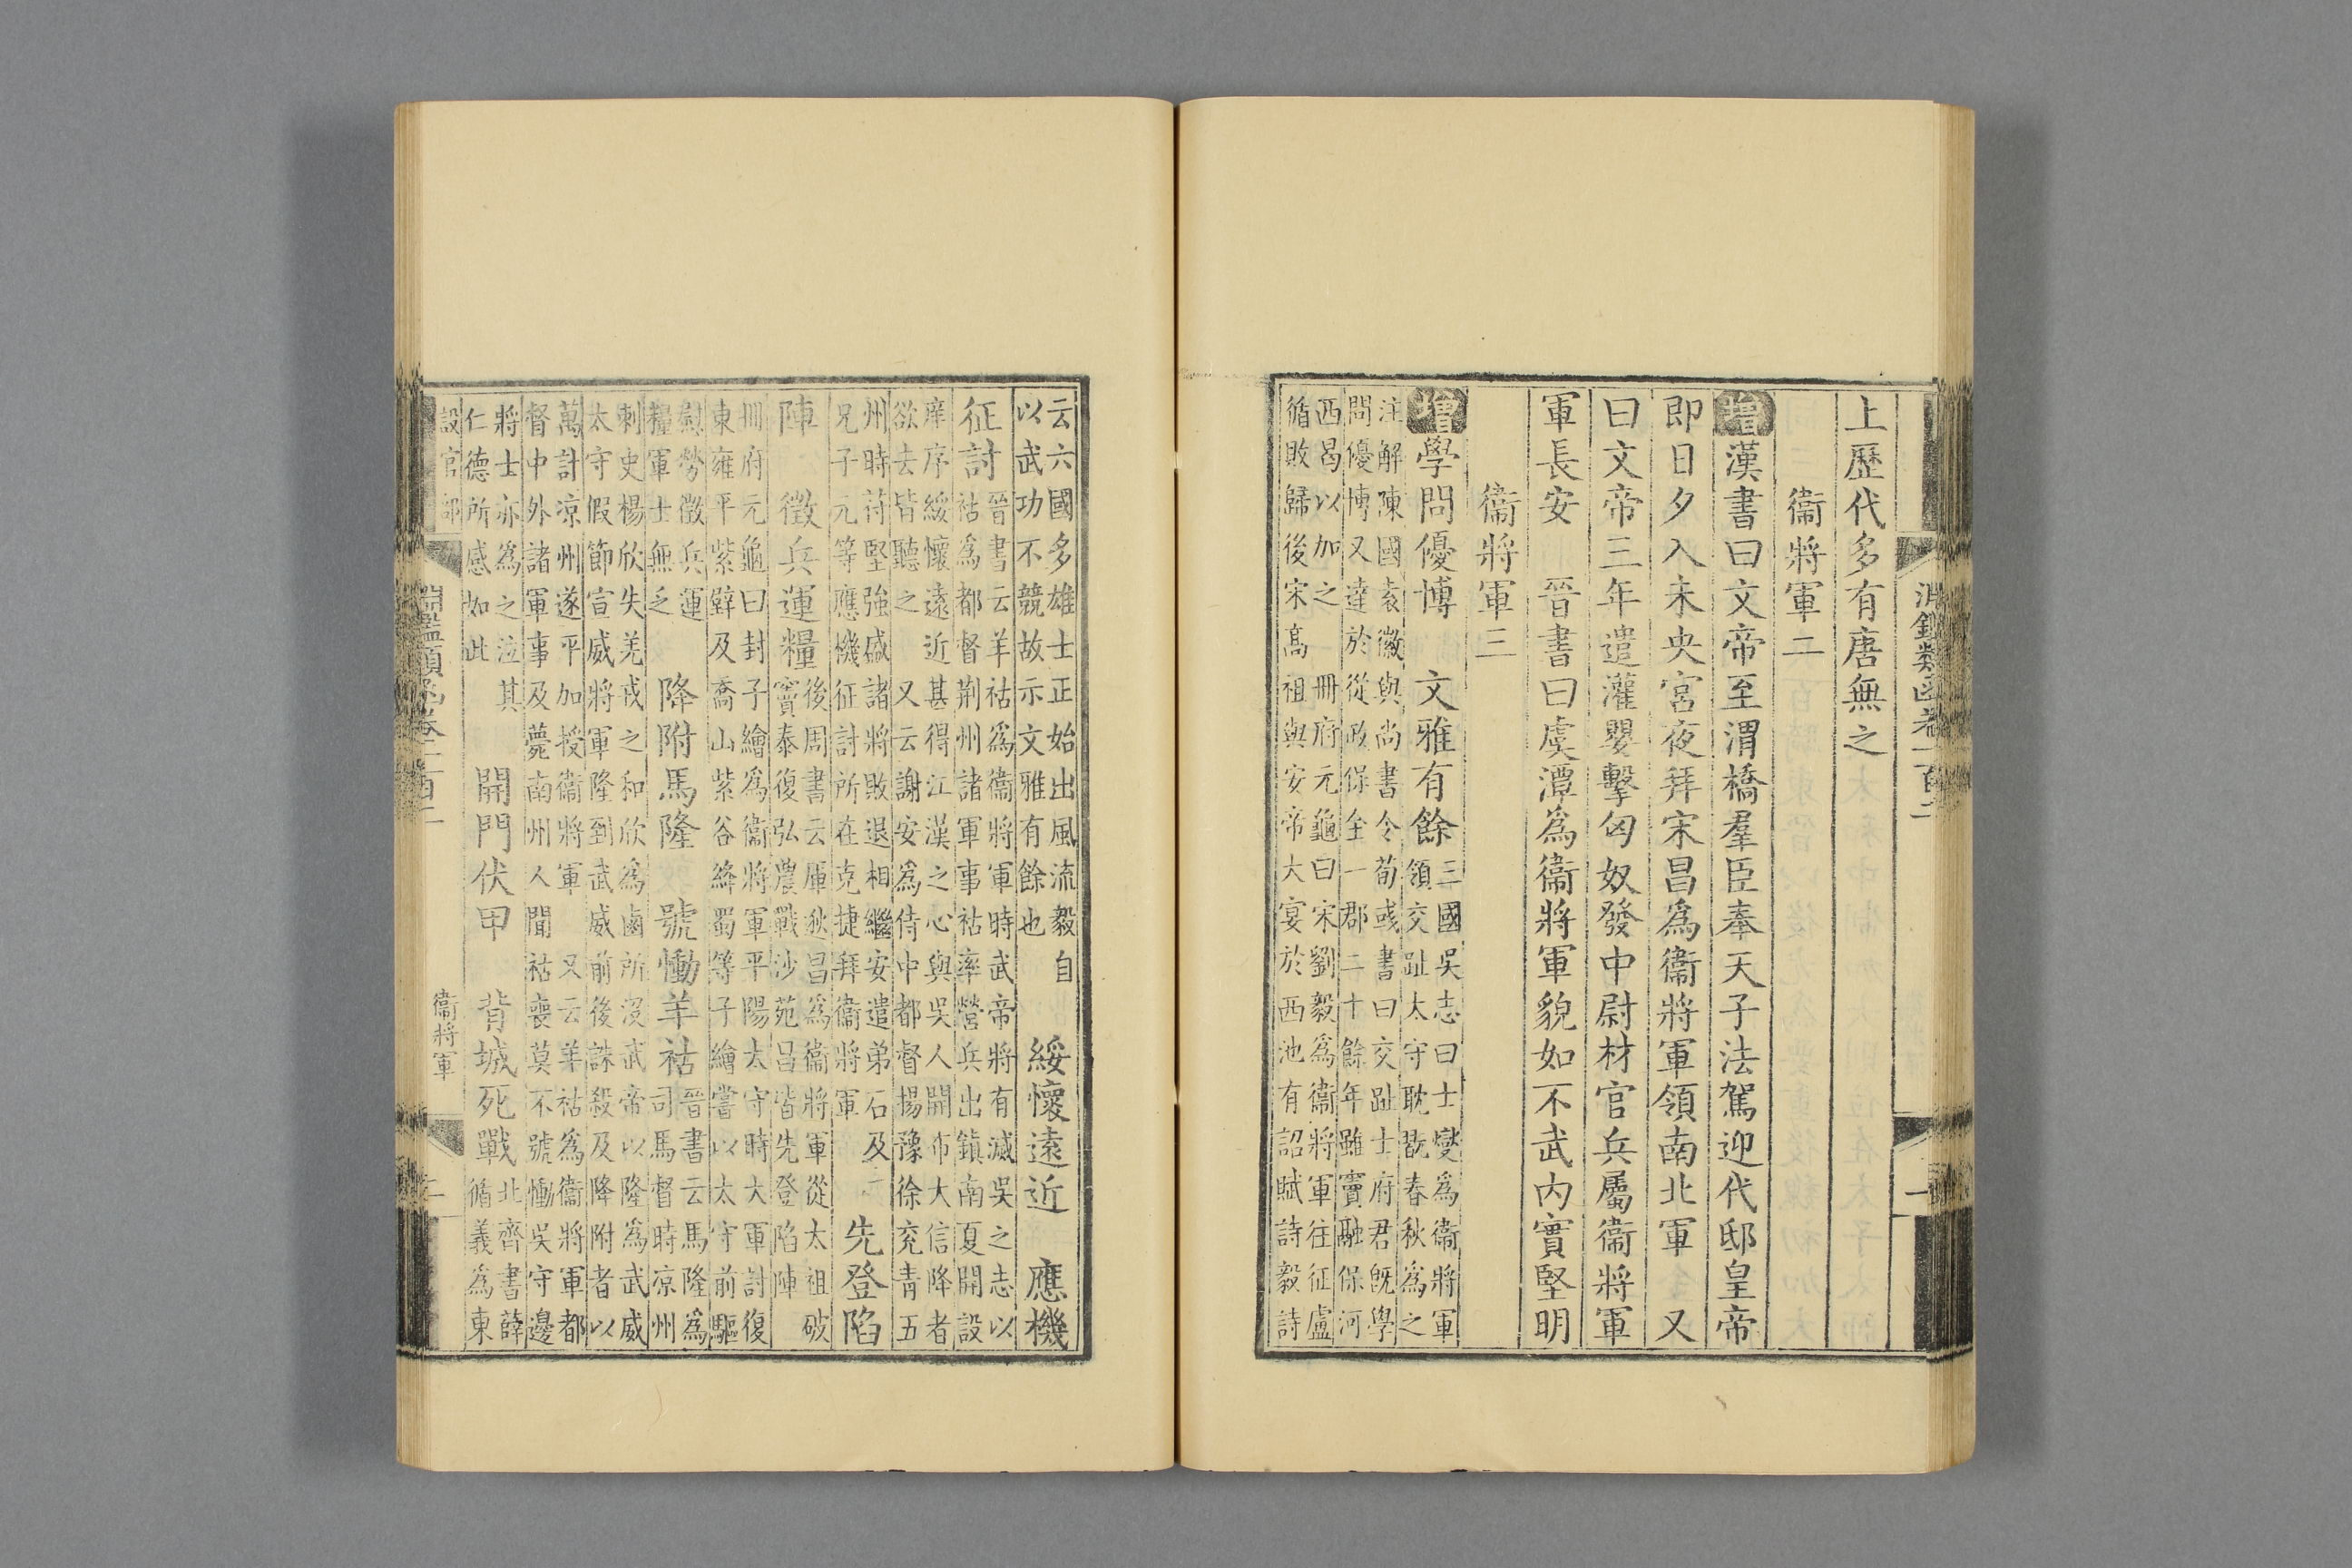 淵鑑類函卷一百二
一
上歷代多有唐無之
衞將軍二
增漢書曰文帝至渭橋羣臣奉天子法駕迎代邸皇帝
即日夕入未央宮夜拜宋昌爲衞將軍領南北軍 又
曰文帝三年遣灌嬰擊匈奴發中尉材官兵屬衞將軍
軍長安 晉書曰虞潭爲衞將軍貌如不武內實堅明
衞將軍三
增學問優博 文雅有餘
三國吳志曰士燮爲衞將軍
領交趾太守耽翫春秋爲之
注解陳國袁徽與尚書令荀彧書曰交趾士府君既學
問優博又達於從政保全一郡二十餘年雖竇融保河
西曷以加之 冊府元龜曰宋劉毅爲衞將軍往征盧
循敗歸後宋高祖與安帝大宴於西池有詔賦詩毅詩
云六國多雄士正始出風流毅自
以武功不競故示文雅有餘也
綏懷遠近 應機
征討
晉書云羊祜爲衞將軍時武帝將有滅吳之志以
祜爲都督荊州諸軍事祜率營兵出鎮南夏開設
庠序綏懷遠近甚得江漢之心與吳人開布大信降者
欲去皆聽之 又云謝安爲侍中都督揚豫徐兗青五
州時苻堅強盛諸將敗退相繼安遣弟石及
兄子元等應機征討所在克捷拜衞將軍
先登陷
陣 徵兵運糧
後周書云厙狄昌爲衞將軍從太祖破
竇泰復弘農戰沙苑昌皆先登陷陣
冊府元龜曰封子繪爲衞將軍平陽太守時大軍討復
東雍平紫壁及喬山紫谷絳蜀等子繪嘗以太守前驅
慰勞徵兵運
糧軍士無乏
降附馬隆 號慟羊祜
晉書云馬隆爲
司馬督時凉州
刺史楊欣失羌戎之和欣爲鹵所沒武帝以隆爲武威
太守假節宣威將軍隆到武威前後誅殺及降附者以
萬計凉州遂平加授衞將軍 又云羊祜爲衞將軍都
督中外諸軍事及薨南州人聞祜喪莫不號慟吳守邊
將士亦爲之泣其
仁德所感如此
開門伏甲 背城死戰
北齊書薛
循義爲東
設官部
淵鑑類函卷一百二
衞將軍
二